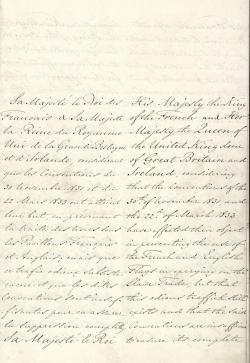 Sa Majesté le Roi des
Français & Sa Majesté
la Reine du Royaume
Uni de la Grande Bretagne
et d'Irlande, considérant
que les Conventions du
30 novembre 1831 et du
22 Mars 1833 ont atteint
leur but en prévenant
la traite des noirs sous
les Pavillons Français
et Anglais, mais que
ce trafic odieux subsiste
encore et que les dites
Conventions sont insuf-
fisantes pour en assurer
la suppression complète,
Sa Majesté le Roi
His Majesty the King
of the French and Her
Majesty the Queen of
the United Kingdom
of Great Britain and
Ireland, considering
that the Conventions of the
30th of November 1831 and
the 22d of March 1833
have effected their object
in preventing the use of
the French and English
Flags in carrying on the
Slave Trade, but that
this odious traffic still
exists and that the said
Conventions are insufficient
to ensure its complete